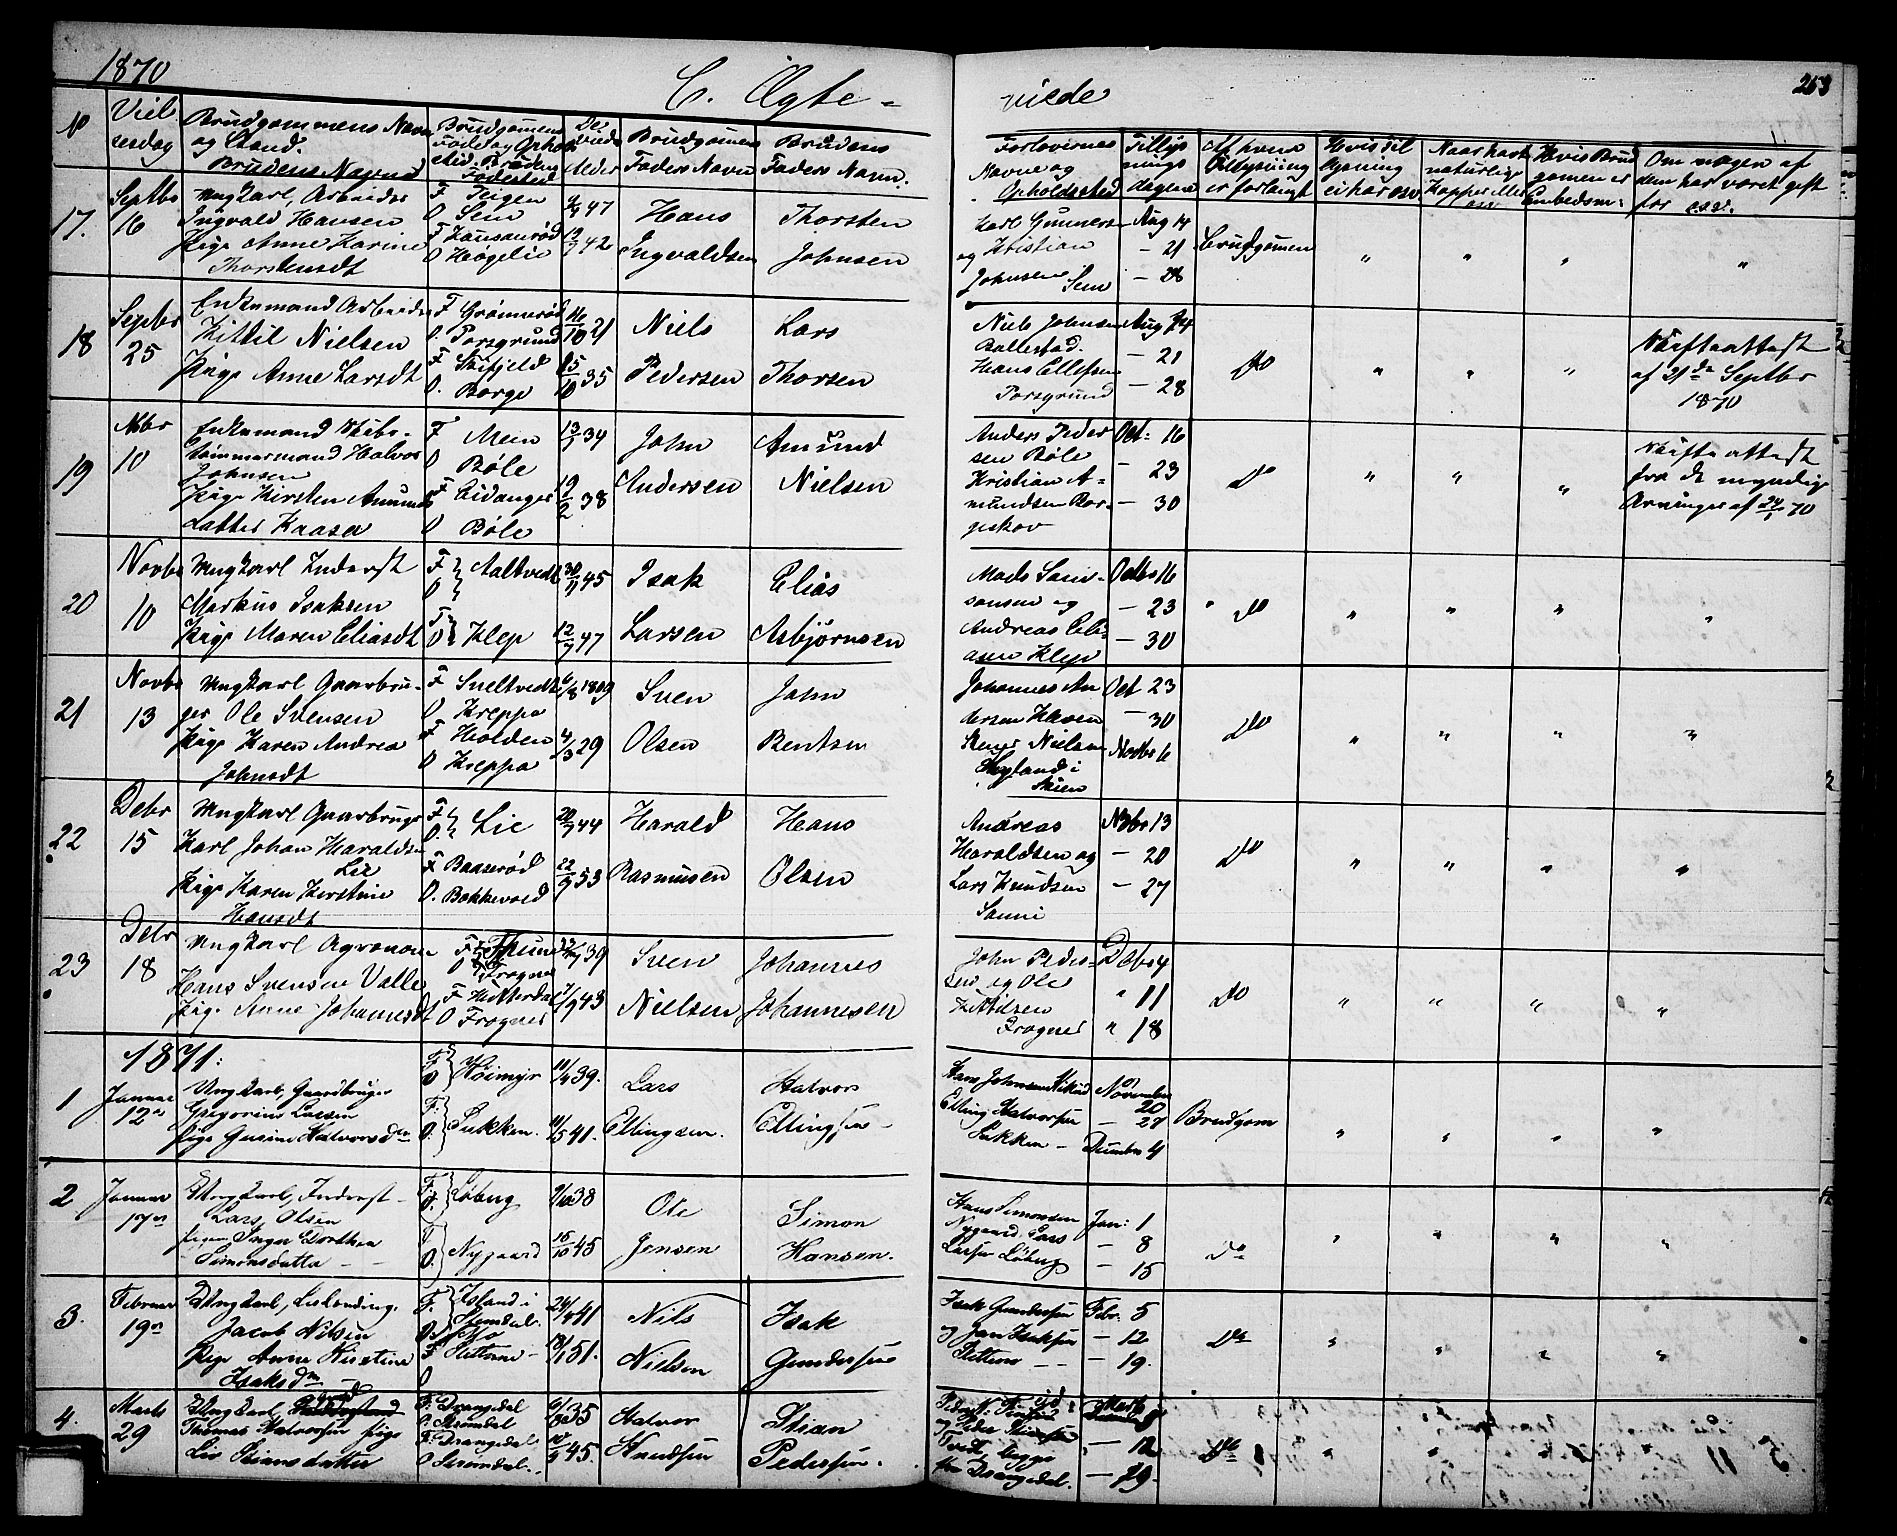 1870
C. Ægte-
viede
253
No
Viel
sesdag
Brudgommens Navn
og Stand.
Brudens Navn
Brudgomens
Føde og Ophold
sted. Brudens
Fødested
De
viedes
Alder
Brudgomens
Faders Navn
Brudens
Faders Navn.
Forlovernes
Navne og
Opholdssted
Tillys
nings
dagene
Af hvem
Tillysning
er forlangt
Hvis til
lysning
ei har osv.
Naar havt
naturlige
Kopper eller
osv
Hvis Brud
gomen er
Embedsm:
Om nogen af
dem har været gift
før osv.
17.
Septbr
16
Ungkarl, Arbeider
Ingvald Hansen
Pige Anne Karine
Thorstensdt
F Teigen
O Sem
F
O Høgelie
9/4 47
42
Hans
Ingvaldsen
Thorsten
Johnsen
Karl Gunnerse
og Kristian
Johnsen Sem
Aug 14
— 21
— 28
Brudgomen
" " " "
18
Septbr
25
Enkemand Arbeider
Kittil Nielsen
Pige Anne Larsdt
F Grønnerød
O. Porsgrund
F Skifjeld
O. Borge
16/10 21
15/10 35
Niels
Pedersen
Lars
Thorsen
Niels Johnsen
Ballestad.
Hans Ellefsen
Porsgrund
Aug 14
— 21
— 28
Do
" " "
Skifteattest
af 21de Septbr
1870
19
Nbr
10
Enkemand Skibs-
tømmermand Halvor
Johnsen
Pige Kirsten Amunds
datter Kaasa
F Mein
O Bøle
F Eidanger
O Bøle
34
19/2 38
John
Andersen
Amund
Nielsen
Anders Peder
sen Bøle
Kristian A-
mundsen Bor-
geskov
Oct: 16
— 23
— 30
Do
" " "
Skifteattest
fra de myndige
Arvinger af 70
20
Novbr
10
Ungkarl Inderst
Markus Isaksen
Pige Maren Eliasdt
F
O Aaltvedt
F
O Klep
45
12/7 47
Isak
Larsen
Elias
Asbjørnsen
Mads Sam-
sonsen og
Andreas Eli-
asen Klep
Octbr 16
— 23
— 30
Do
" " " "
21
Novbr
13
Ungkarl Gaardbru-
ger Ole Svensen
Pige Karen Andrea
Johnsdt
F Sneltvedt
O Kreppa
F Holden
O Kreppa
6/8 1809
4/3 29
Sven
Olsen
John
Bentsen
Johannes An
dersen Kleven
Nielsen
i
Skien
Oct 23
— 30
Novbr 6
Do
" " " "
22
Debr
15
Ungkarl Gaardbruger
Karl Johan Haraldsen
Lie
Pige Karen Kirstine
Hansdt
F
O. Lie
F Baaserød
O. Bakkevold
44
22/9 53
Harald
Rasmusen
Hans
Olsen
Andreas
Haraldsen og
Lars Knudsen
Sanni
Nvbr 13
— 20
— 27
Do
" " " "
23
Debr
18
Ungkarl Agronom
Hans Svensen Valle
Pige Anne Johannesdt
F
O Frogner
F Hitterdal
O Frogner
39
43
Sven
Nielsen
Johannes
Johannesen
John Peder-
sen og Ole
Kittilsen
Frogner
Debr 4
" 11
" 18
Do
" " " "
1871:
1
Januar
12te
Ungkarl, Gaardbruger
Gregorius Larsen
pige Gurine Halvorsdtr
F
O Høimyr
F:
O. Sukken.
11/4 39.
11/5 41.
Lars
Ellingsen.
Halvor
Ellingsen-
Hans Johnsen
Elling Halvorsen
Sukken -
November
20
— 27
December 4
Brudgom
" " " "
2
Januar
17de
Ungkarl, Inderst -
Lars Olsen
pigen Inger Dorthea
Simonsdatter - -
F:
O. Løberg
F
O. Nygaard
38
15/10 45
Ole
Jensen
Simon
Hansen.
Hans Simonsen
Nygaard, Lars
Larsen Løberg
Jan: 1
— 8
— 15
Do
" " " "
3.
Februar
19de
Ungkarl, Leilænding.
Jacob Nilsen
Pige Anne Kirstine
Isaksdtr
F. Island i
Slemdal.
O. Mo
F
O
24/ 41
51.
Nils
Nielsen
Isak
Gundersen
Isak Gundersen
og Jan Isaksen
Febr. 5
— 12
— 19.
Do
" " " "
4.
Marts
29
Ungkarl,
Thomas Halvorsen pige
Liv Stiansdatter
F. Drangedal
O. Slemdal
F. Drangedal
O Slemdal.
35
45.
Halvor
Knudsen
Stian
Pedersen.
Drangedal.
Marts
— 12
— 29.
Do
" " " "